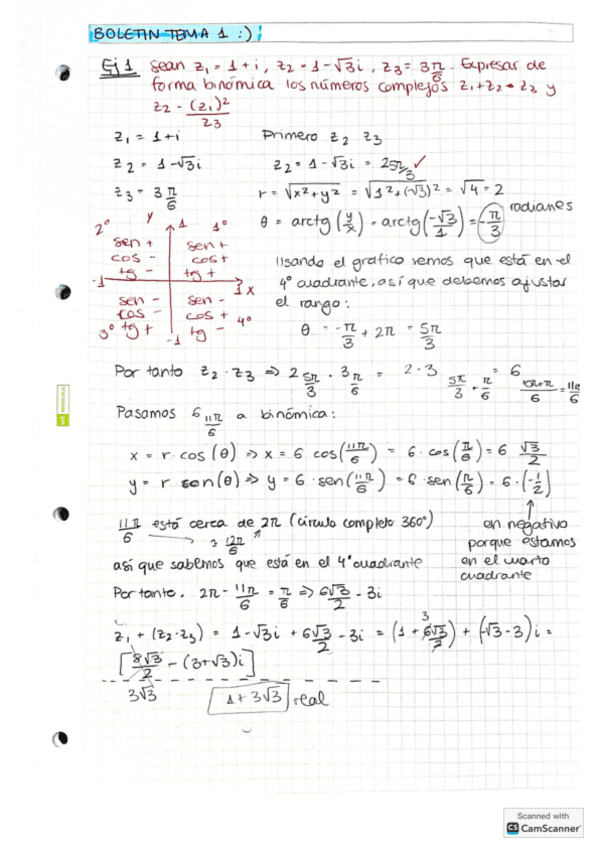 BOLETIN TEMA 1 :)
Ej 1 Sean z₁ = 1 + i, z₂ = 1 - √3i, z₃ = 3 π/6. Expresar de
forma binómica los números complejos z₁+z₂·z₃ y
z₂ - (z₁)²/z₃
z₁ = 1+i Primero z₂ z₃
z₂ = 1-√3i z₂ = 1 - √3i = 2 5π/3 ✓
z₃ = 3 π/6 r = √x²+y² = √1²+(-√3)² = √4 = 2
θ = arctg(y/x) = arctg(-√3/1) = -π/3 radianes
2º y 1 1º
sen + sen +
cos - cos +
tg - tg +
-1 1 x
sen - sen -
cos - cos +
3º tg + tg - 4º
-1
Usando el gráfico vemos que está en el
4º cuadrante, así que debemos ajustar
el rango:
θ = -π/3 + 2π = 5π/3
Por tanto z₂ · z₃ ⇒ 2 5π/3 · 3 π/6 = 2·3 5π/3 + π/6 = 6 10π+π/6 = 11π/6
Pasamos 6 11π/6 a binómica:
x = r · cos(θ) ⇒ x = 6 cos(11π/6) = 6 · cos(π/6) = 6 √3/2
y = r sen(θ) ⇒ y = 6 · sen(11π/6) = 6 · sen(π/6) = 6 · (-1/2)
11π/6 está cerca de 2π (círculo completo 360º)
12π/6
así que sabemos que está en el 4º cuadrante
en negativo
porque estamos
en el cuarto
cuadrante
Por tanto, 2π - 11π/6 = π/6 ⇒ 6√3/2 - 3i
z₁ + (z₂·z₃) = 1 - √3i + 6√3/2 - 3i = (1 + 6√3/2) + (-√3-3)i =
3
[8√3/2 - (3+√3)i]
3√3 1+3√3 real
Scanned with
CS CamScanner